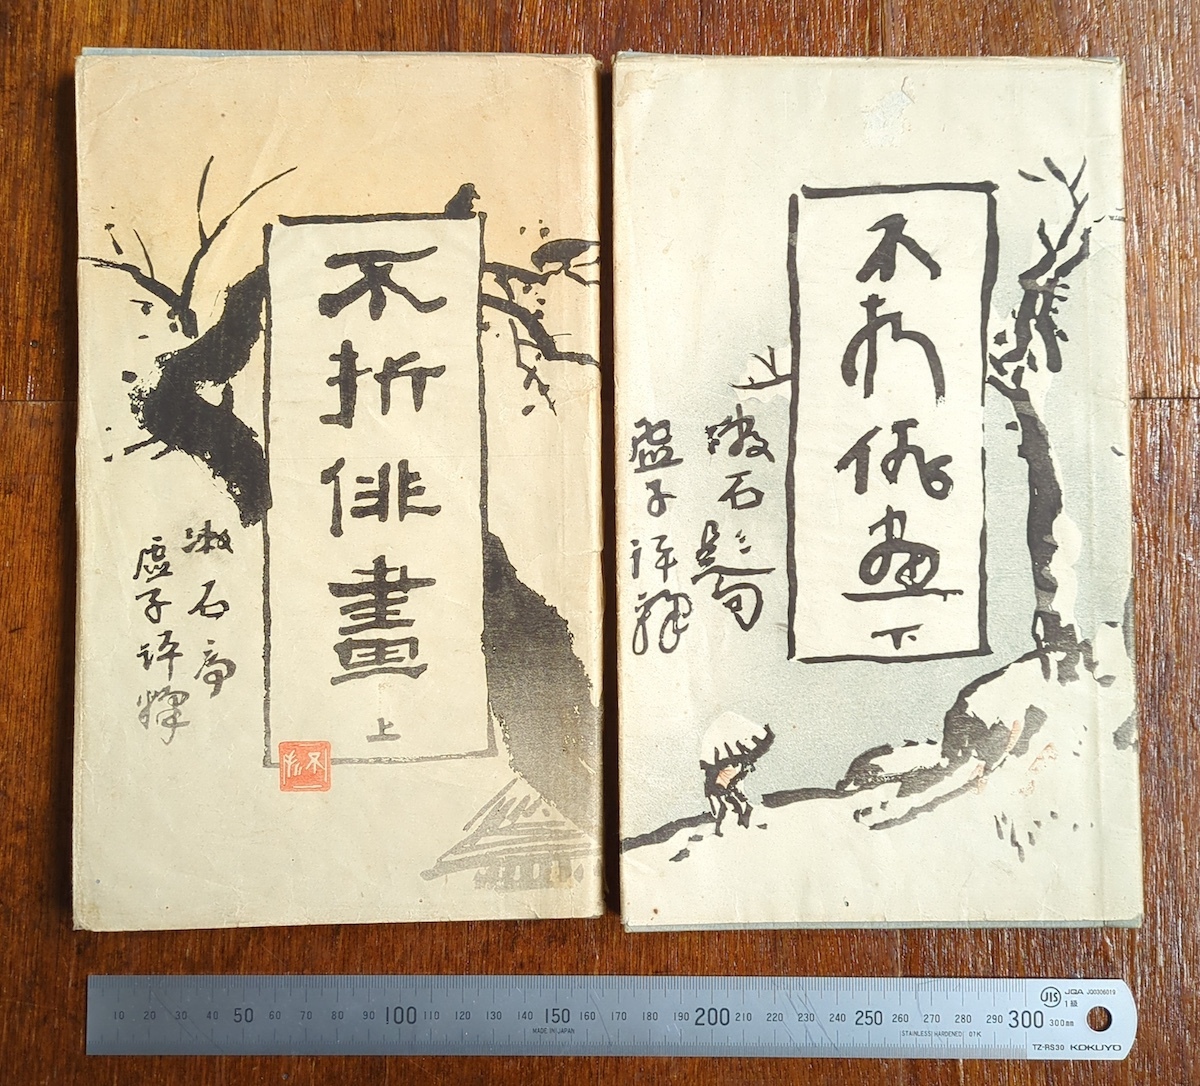 不折俳畫 上
漱石序
虚子評釋
不折
不折俳畫 下
漱石題句
虚子評釋
10 20 30 40 50 60 70 80 90 100 110 120 130 140 150 160 170 180 190 200 210 220 230 240 250 260 270 280 290 300 300mm
MADE IN JAPAN
STAINLESS HARDENED 01K
JIS
JQA JQ0306019
1級
TZ-RS30 KOKUYO